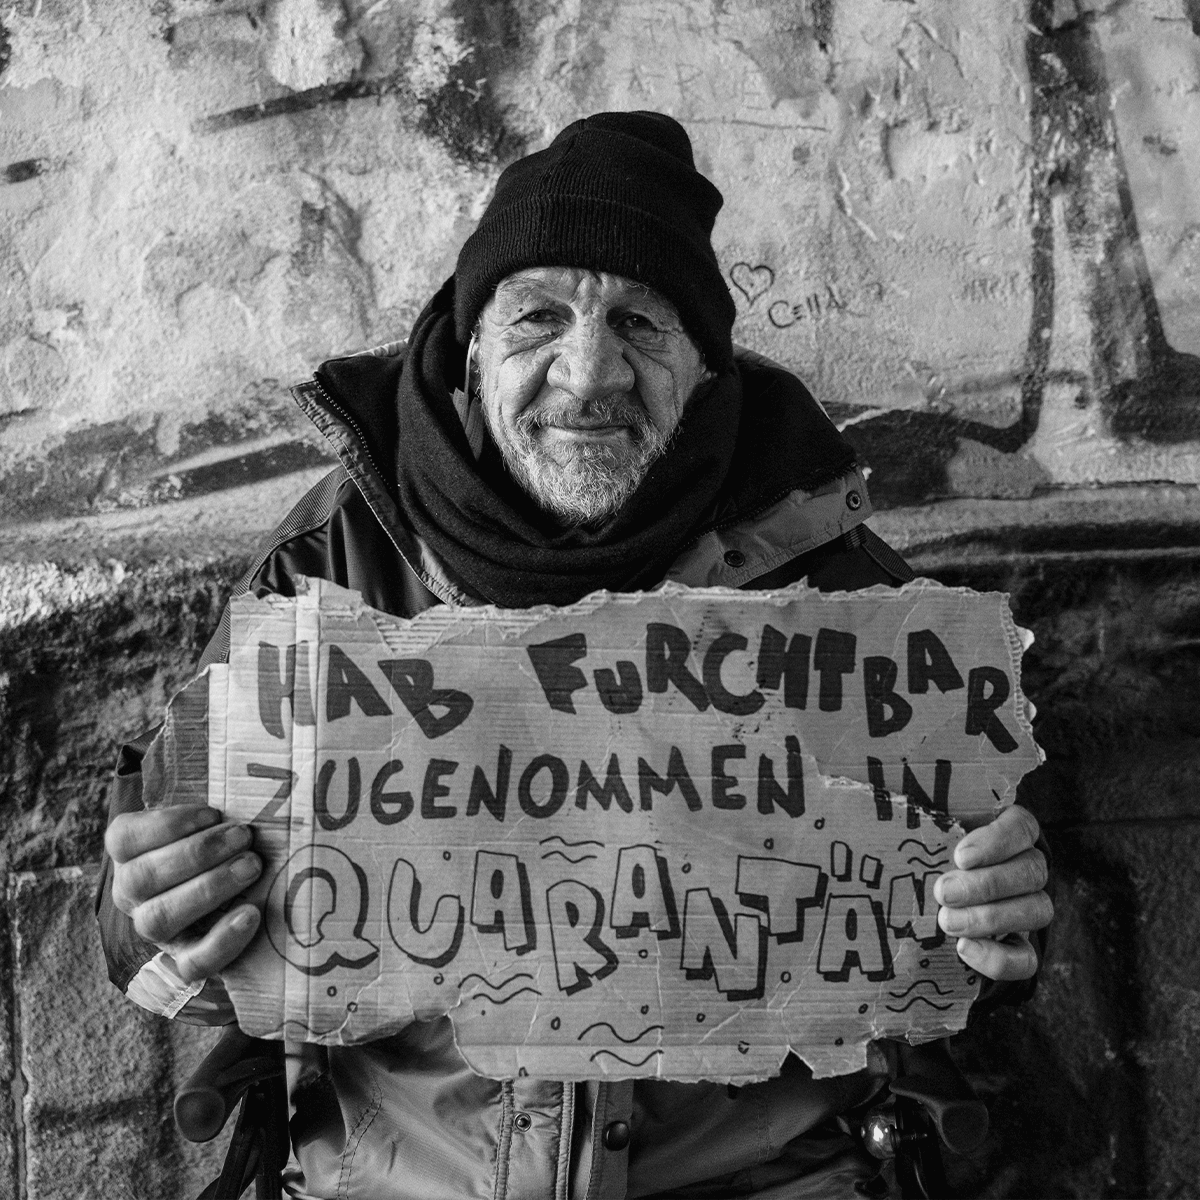 Cella
HAB FURCHTBAR
ZUGENOMMEN IN
QUARANTÄN